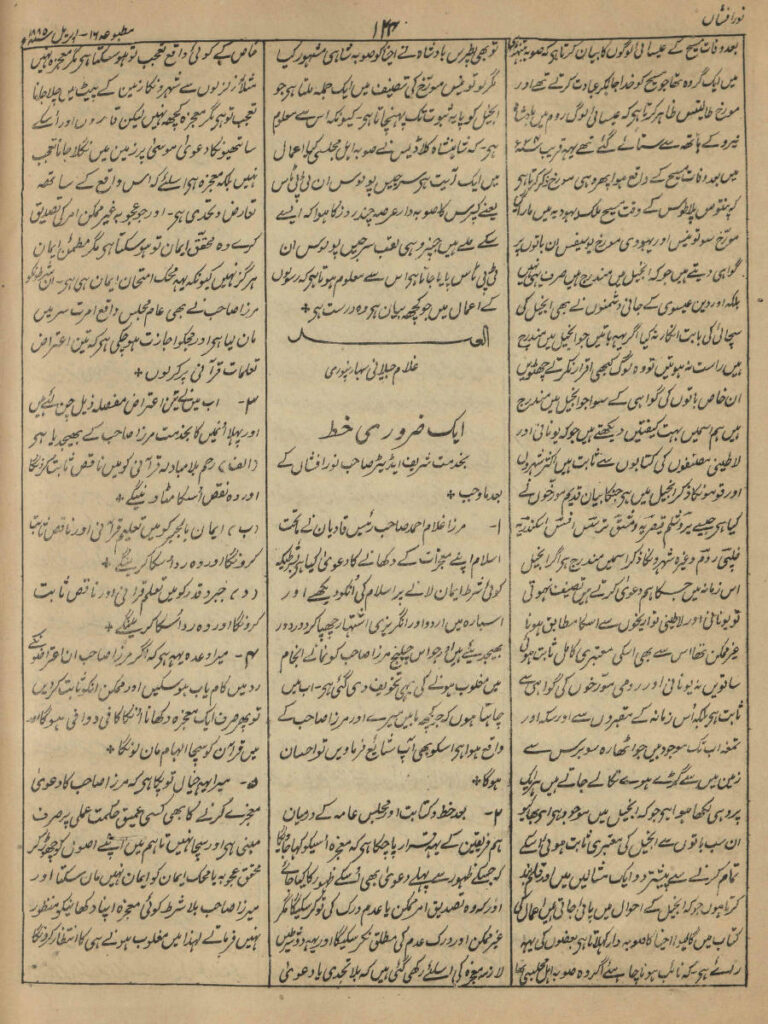 نور افشاں
۱۲۴
مطبوعہ ۱۶- اپریل سنہ ۱۸۸۵ء
بعد وفات مسیح کے عیسائی لوگوں کا بیان کرتا ہے کہ صوبہ
میں ایک گروہ تھا جو مسیح کو خدا جانکر عبادت کرتے تھے اور
مورخ طالیتس ظاہر کرتا ہے کہ عیسائی لوگ روم میں بادشاہ
نیرو کے ہاتھ سے ستائے گئے تھے یہہ قریب ۳۴ء
میں بعد وفات مسیح کے واقع ہوا پھر وہی مورخ ذکر کرتا ہے
کہ پنتوس پلاطوس کے وقت مسیح ملک یہودیہ میں مارا گیا
مورخ سوتونیس اور یہودی مورخ یوسیفس ان باتوں پر
گواہی دیتے ہیں جو کہ انجیل میں مندرج ہیں صرف یہی نہیں
بلکہ اور دین عیسوی کے جانی دشمنوں نے بھی انجیل کی
سچائی کی بابت انکار نہ کیا اگر یہہ باتیں جو انجیل میں مندرج
ہیں راست نہ ہوتیں تو وہ لوگ کبھی اقرار نکرتے چھٹویں
ان خاص باتوں کی گواہی کے سوا جو انجیل میں مندرج
ہیں ہم اسمیں بہت کیفیتیں دیکھتے ہیں جو کہ یونانی اور
لاطینی مصنفوں کی کتابوں سے ثابت ہیں اکثر شہروں
اور قوموں کا ذکر انجیل میں ہے جنکا بیان قدیم مورخوں نے
کیا ہے جیسے یروشلم قیصریہ دمشق ترسس افسس اسکندریہ
فلپی روم وغیرہ شہروں کا ذکر اسمیں مندرج ہے اگر انجیل
اس زمانہ میں جسکا ہم دعویٰ کرتے ہیں تصنیف نہوتی
تو یونانی اور لاطینی تواریخوں سے اسکا مطابق ہونا
غیر ممکن تھا اس سے بھی اسکی معتبری کامل ثابت ہوئی
ساتویں نہ یونانی اور رومی مورخوں کی گواہی سے
ثابت ہے بلکہ اُس زمانہ کے مقبروں سے اور سکہ اور
تمغہ اب تک موجود ہیں جو اٹھارہ سو برس سے
زمین میں سے گڑے ہوے نکالے جاتے ہیں ہر ایک
پر وہی لکھا ہوا ہے جو کہ انجیل میں موجود ہے
ان سب باتوں سے انجیل کی معتبری ثابت ہوئی اسکے
تمام کرنے سے پیشتر دو ایک مثالیں میں اور قلمبند
کرتا ہوں جو کہ انجیل کے احوال میں پائی جاتی ہیں اعمال کی
کتاب میں گالیو اخیا کا صوبہ دار کہلاتا ہے بعضوں کی یہہ
رائے ہے کہ نائب ہونا چاہئے اگر وہ صوبہ اہل مجلس تھا
تو بھی پطرس بادشاہ نے اخیا کو صوبہ شاہی مشہور کیا
مگر سوتونیس مورخ کی تصنیف میں ایک جملہ ملتا ہے جو
انجیل کو پایہ ثبوت تک پہنچاتا ہے۔ کیونکہ اس سے معلوم
ہے۔ کہ شاہنشاہ کلاڈیس نے صوبہ اہل مجلس کیا اعمال
میں ایک آیت ہے سرجیس پولوس ان ٹی پٹی ٹاس
یعنے کپرس کا صوبہ دار عرصہ چند روز کا ہوا کہ ایسے
سکے ملے ہیں جنپر وہی لقب سرجیس پولوس ان
ٹی پٹی ٹاس پایا جاتا ہے اس سے معلوم ہوتا ہے کہ رسولوں
کے اعمال میں جو کچھ بیان ہے وہ درست ہے +
العبد
غلام جیلانی سہارنپوری
ایک ضروری خط
بخدمت شریف ایڈیٹر صاحب نور افشاں کے
بعد ماوجب +
۱- مرزا غلام احمد صاحب رئیس قادیان نے بحقیت
اسلام اپنے معجزات کے دکھانے کا دعویٰ کیا ہے بشرطیکہ
کوئی بشرط ایمان لانے بر اسلام کی انکو دیکھے اور
اسبارہ میں اردو اور انگریزی اشتہار چھپا کر دور دور
بھیجدیئے ہیں اور جو اس چیلنج مرزا صاحب کو نمانے انجام
میں مغلوب ہونے کی یہی تخویف دی گئی ہے۔ اب میں
چاہتا ہوں کہ جو کچھ مابین میرے اور مرزا صاحب کے
واقع ہوا ہے اسکو بھی آپ شائع فرماویں تو احسان
ہوگا +
۲- بعد خط و کتابت اور مجلس عامہ کے درمیان
ہم فریقین کے یہہ قرار پا چکا ہے کہ معجزہ اُسیکو کہا جاویگا
کہ جسکے ظہور سے پہلے دعویٰ بھی اُسکے ظہور کا کیا جائے
اور کہ وہ تصدیق امر ممکن یا عدم درک کی تو کر سکیگا مگر
غیر ممکن اور درک عدم کی مطلق نکر سکیگا اور یہہ دو شرطیں
لازمہ معجزہ کی اسلئے رکھی گئی ہیں کہ بلا تحدی یا دعویٰ
خاص کے کوئی واقع تعجب تو ہو سکتا ہے مگر معجزہ نہیں
مثلاً زلزلوں سے شہروں کا زمین کے پیٹ میں چلا جانا
تعجب تو ہے مگر معجزہ کچھ نہیں لیکن قارون اور اُسکے
ساتھیوں کا دعویٰ موسیٰ پر زمین میں نگلا جانا تعجب
نہیں بلکہ معجزہ ہے اسلئے کہ اس واقع کے ساتھہ
تعارض و تحدی ہے۔ اور جو عجوبہ غیر ممکن امر کی تصدیق
کرے وہ محقق ایمان تو ہو سکتا ہے مگر مطمئن ایمان
ہرگز نہیں کیونکہ یہہ محک امتحان ایمان ہی ہے۔ ان
مرزا صاحب نے بھی عام مجلس واقع امرت سر میں
مان لیا ہے اور مجھکو اجازت ہو چکی ہے کہ تین اعتراض
تعلیمات قرآنی پر کروں +
۳- اب مینے یہ تین اعتراض مفصلہ ذیل چن لئے ہیں
اور پہلا انمیں کا بخدمت مرزا صاحب کے بھیجدیا ہے
(الف) رحم بلا مبادلہ قرآنی کو میں ناقص ثابت کرونگا
اور وہ نقص اُسکا مٹادینگے +
(ب) ایمان بالجبر کو میں تعلیم قرآنی اور ناقص ثابت
کرونگا اور وہ رد اُسکا کرینگے +
(د) جبر و قدر کو میں تعلیم قرآنی اور ناقص ثابت
کرونگا اور وہ رد اُسکا کرینگے +
۴- میرا وعدہ یہہ ہے کہ اگر مرزا صاحب ان اعتراضونکے
رد میں کامیاب ہو سکیں اور ممکن انکو ثابت کردیں
تو پھر صرف ایک معجزہ دکھانا انکا کافی و وافی ہوگا اور
میں قرآن کو سچا الہام مان لونگا +
۵- میرا یہہ خیال تو پکا ہے کہ مرزا صاحب کا دعویٰ
معجزے کرنے کا بھی کسی عمیق حکمت عملی پر صرف
مبنی ہے اور سچا نہیں تاہم میں اپنے اصولوں کو چھوڑ کر
محقق عجوبہ یا محک ایمان کو ایمان نہیں مان سکتا اور
میرزا صاحب بلا شرط کوئی معجزہ اپنا دکھانا ہیکہ منظور
نہیں فرماتے لہذا میں مغلوب ہونے ہی کا انتظار کرونگا